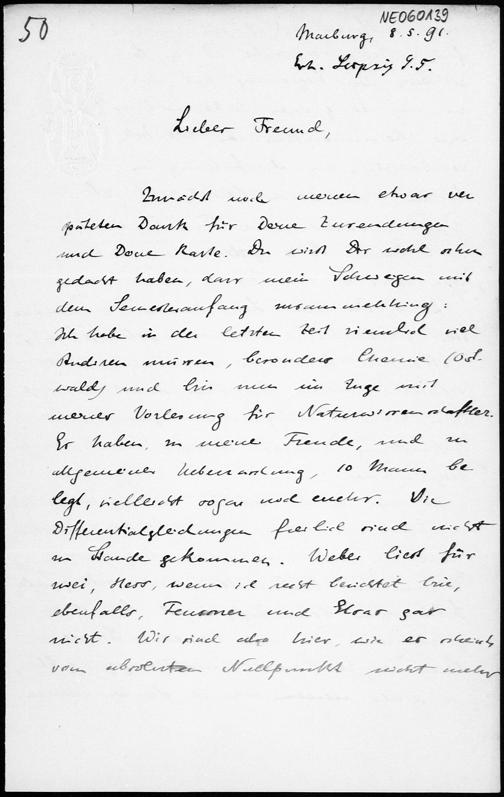 50
NE060139
Marburg, 8. 5. 91.
Erh. Leipzig 9.5.
Lieber Freund,
Zunächst noch meinen etwas ver
späteten Dank für Deine Zusendungen
und Deine Karte. Du wirst Dir wohl schon
gedacht haben, dass mein Schweigen mit
dem Semesteranfang zusammenhing:
Ich habe in der letzten Zeit ziemlich viel
studieren müssen, besonders Chemie (Ost-
wald) und bin nun im Zuge mit
meiner Vorlesung für Naturwissenschaftler.
Es haben, zu meiner Freude, und zu
allgemeiner Ueberraschung, 10 Mann be
legt, vielleicht sogar noch mehr. Die
Differentialgleichungen freilich sind nicht
zu Stande gekommen. Weber liest für
zwei, Hess, wenn ich recht berichtet bin,
ebenfalls, Feussner und Elsas gar
nicht. Wir sind also hier, wie es scheint
vom absoluten Nullpunkt nicht mehr